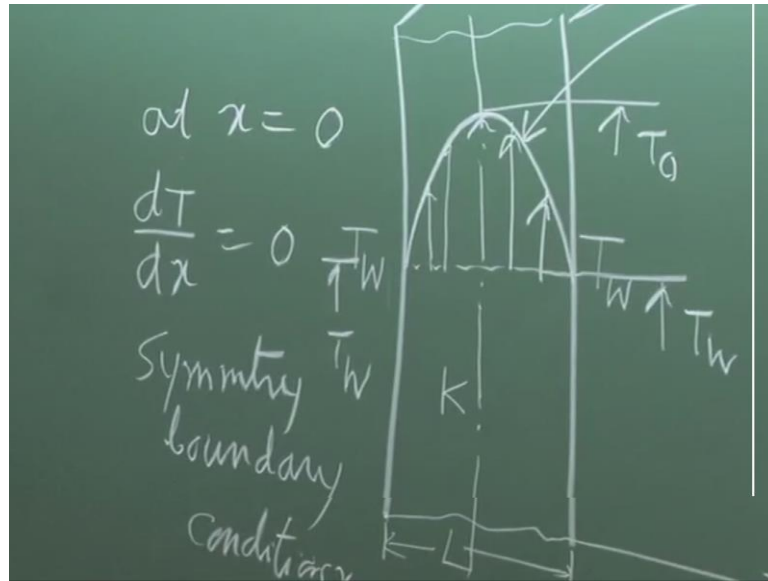 at x = 0
dT
dx
= 0
Symmtry
boundary
conditions
T_W
T_W
T_0
T_W
T_W
K
L